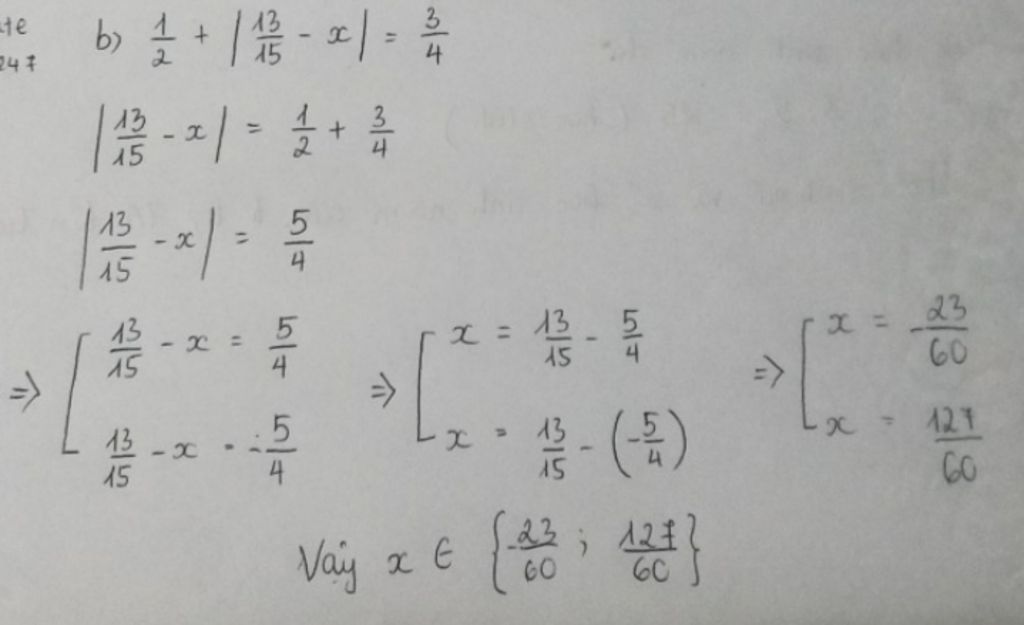 te
247
b) 1/2 + |13/15 - x| = 3/4
|13/15 - x| = 1/2 + 3/4
|13/15 - x| = 5/4
=> [ 13/15 - x = 5/4 => [ x = 13/15 - 5/4 => [ x = -23/60
13/15 - x = -5/4 x = 13/15 - (-5/4) x = 127/60
Vậy x ∈ {-23/60 ; 127/60}